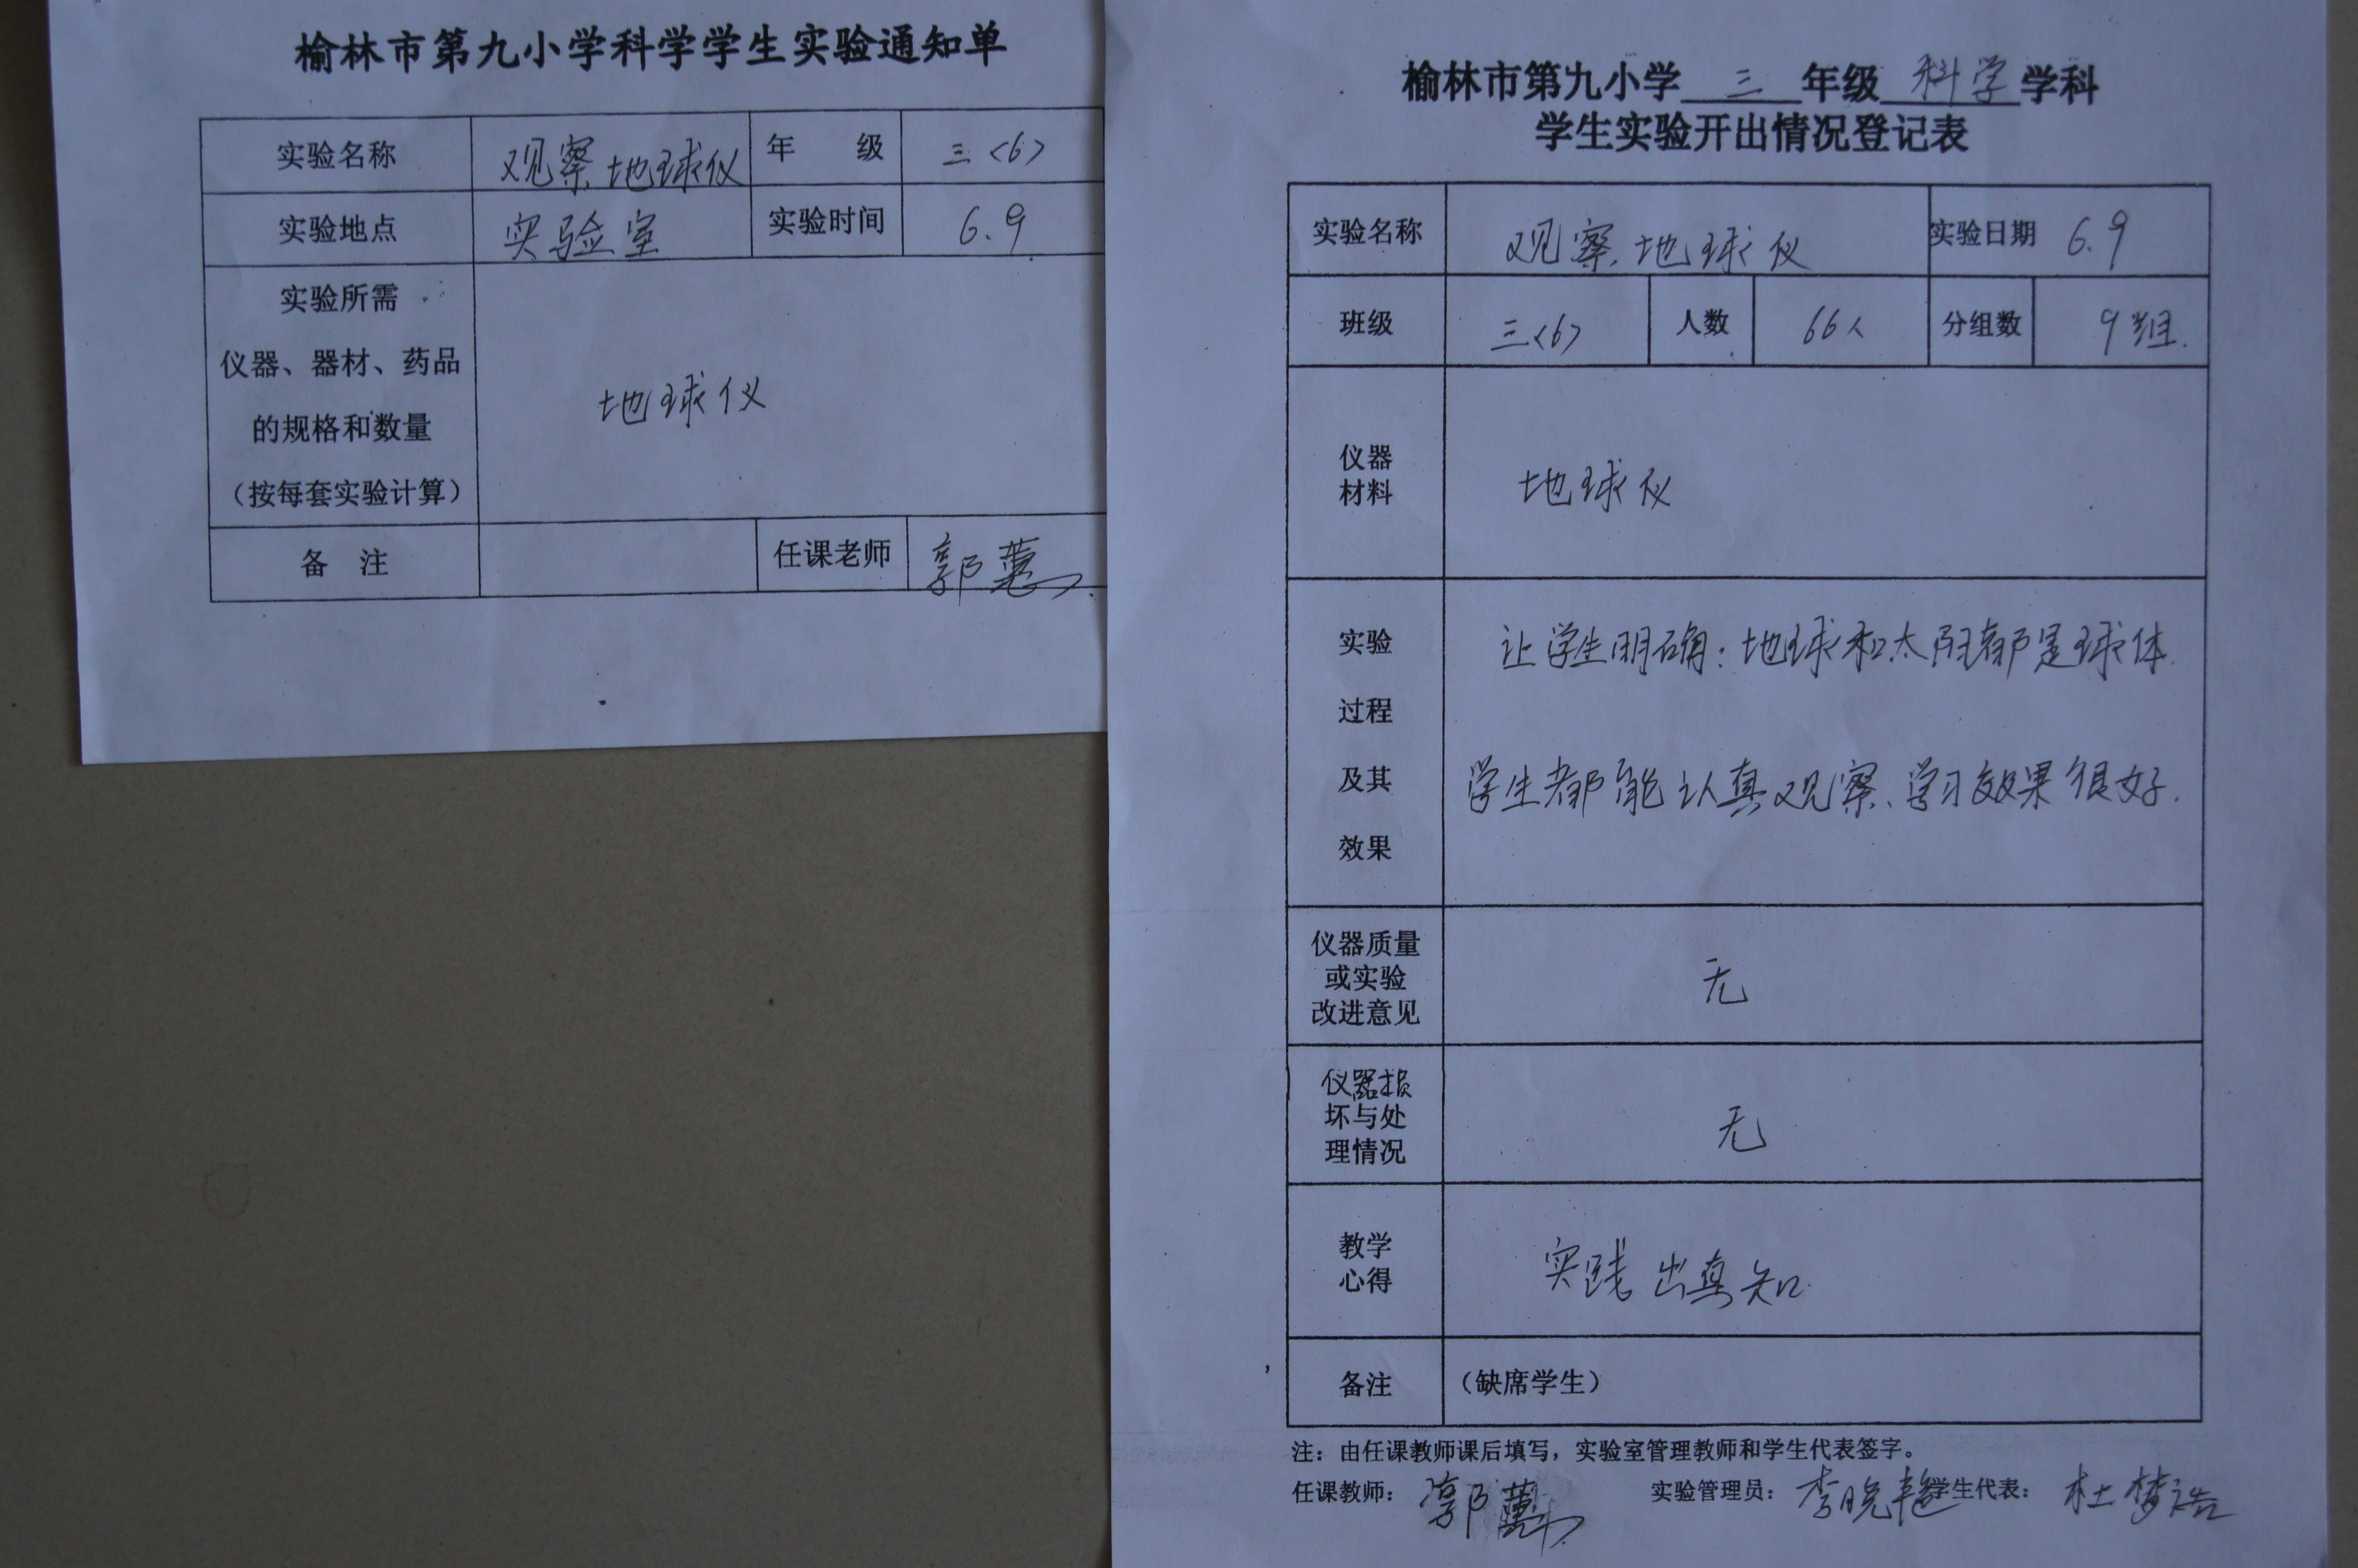 榆林市第九小学科学学生实验通知单
实验名称 观察地球仪 年 级 三<6>
实验地点 实验室 实验时间 6.9
实验所需
仪器、器材、药品
的规格和数量
（按每套实验计算）
地球仪
备 注 任课老师 郭慧
榆林市第九小学 三 年级 科学 学科
学生实验开出情况登记表
实验名称 观察地球仪 实验日期 6.9
班级 三<6> 人数 66人 分组数 9组.
仪器
材料
地球仪
实验
过程
及其
效果
让学生明确：地球和太阳都是球体.
学生都能认真观察、学习效果很好.
仪器质量
或实验
改进意见
无
仪器损
坏与处
理情况
无
教学
心得
实践出真知.
备注 （缺席学生）
注：由任课教师课后填写，实验室管理教师和学生代表签字。
任课教师： 郭 实验管理员： 李晓艳 学生代表： 杜梦